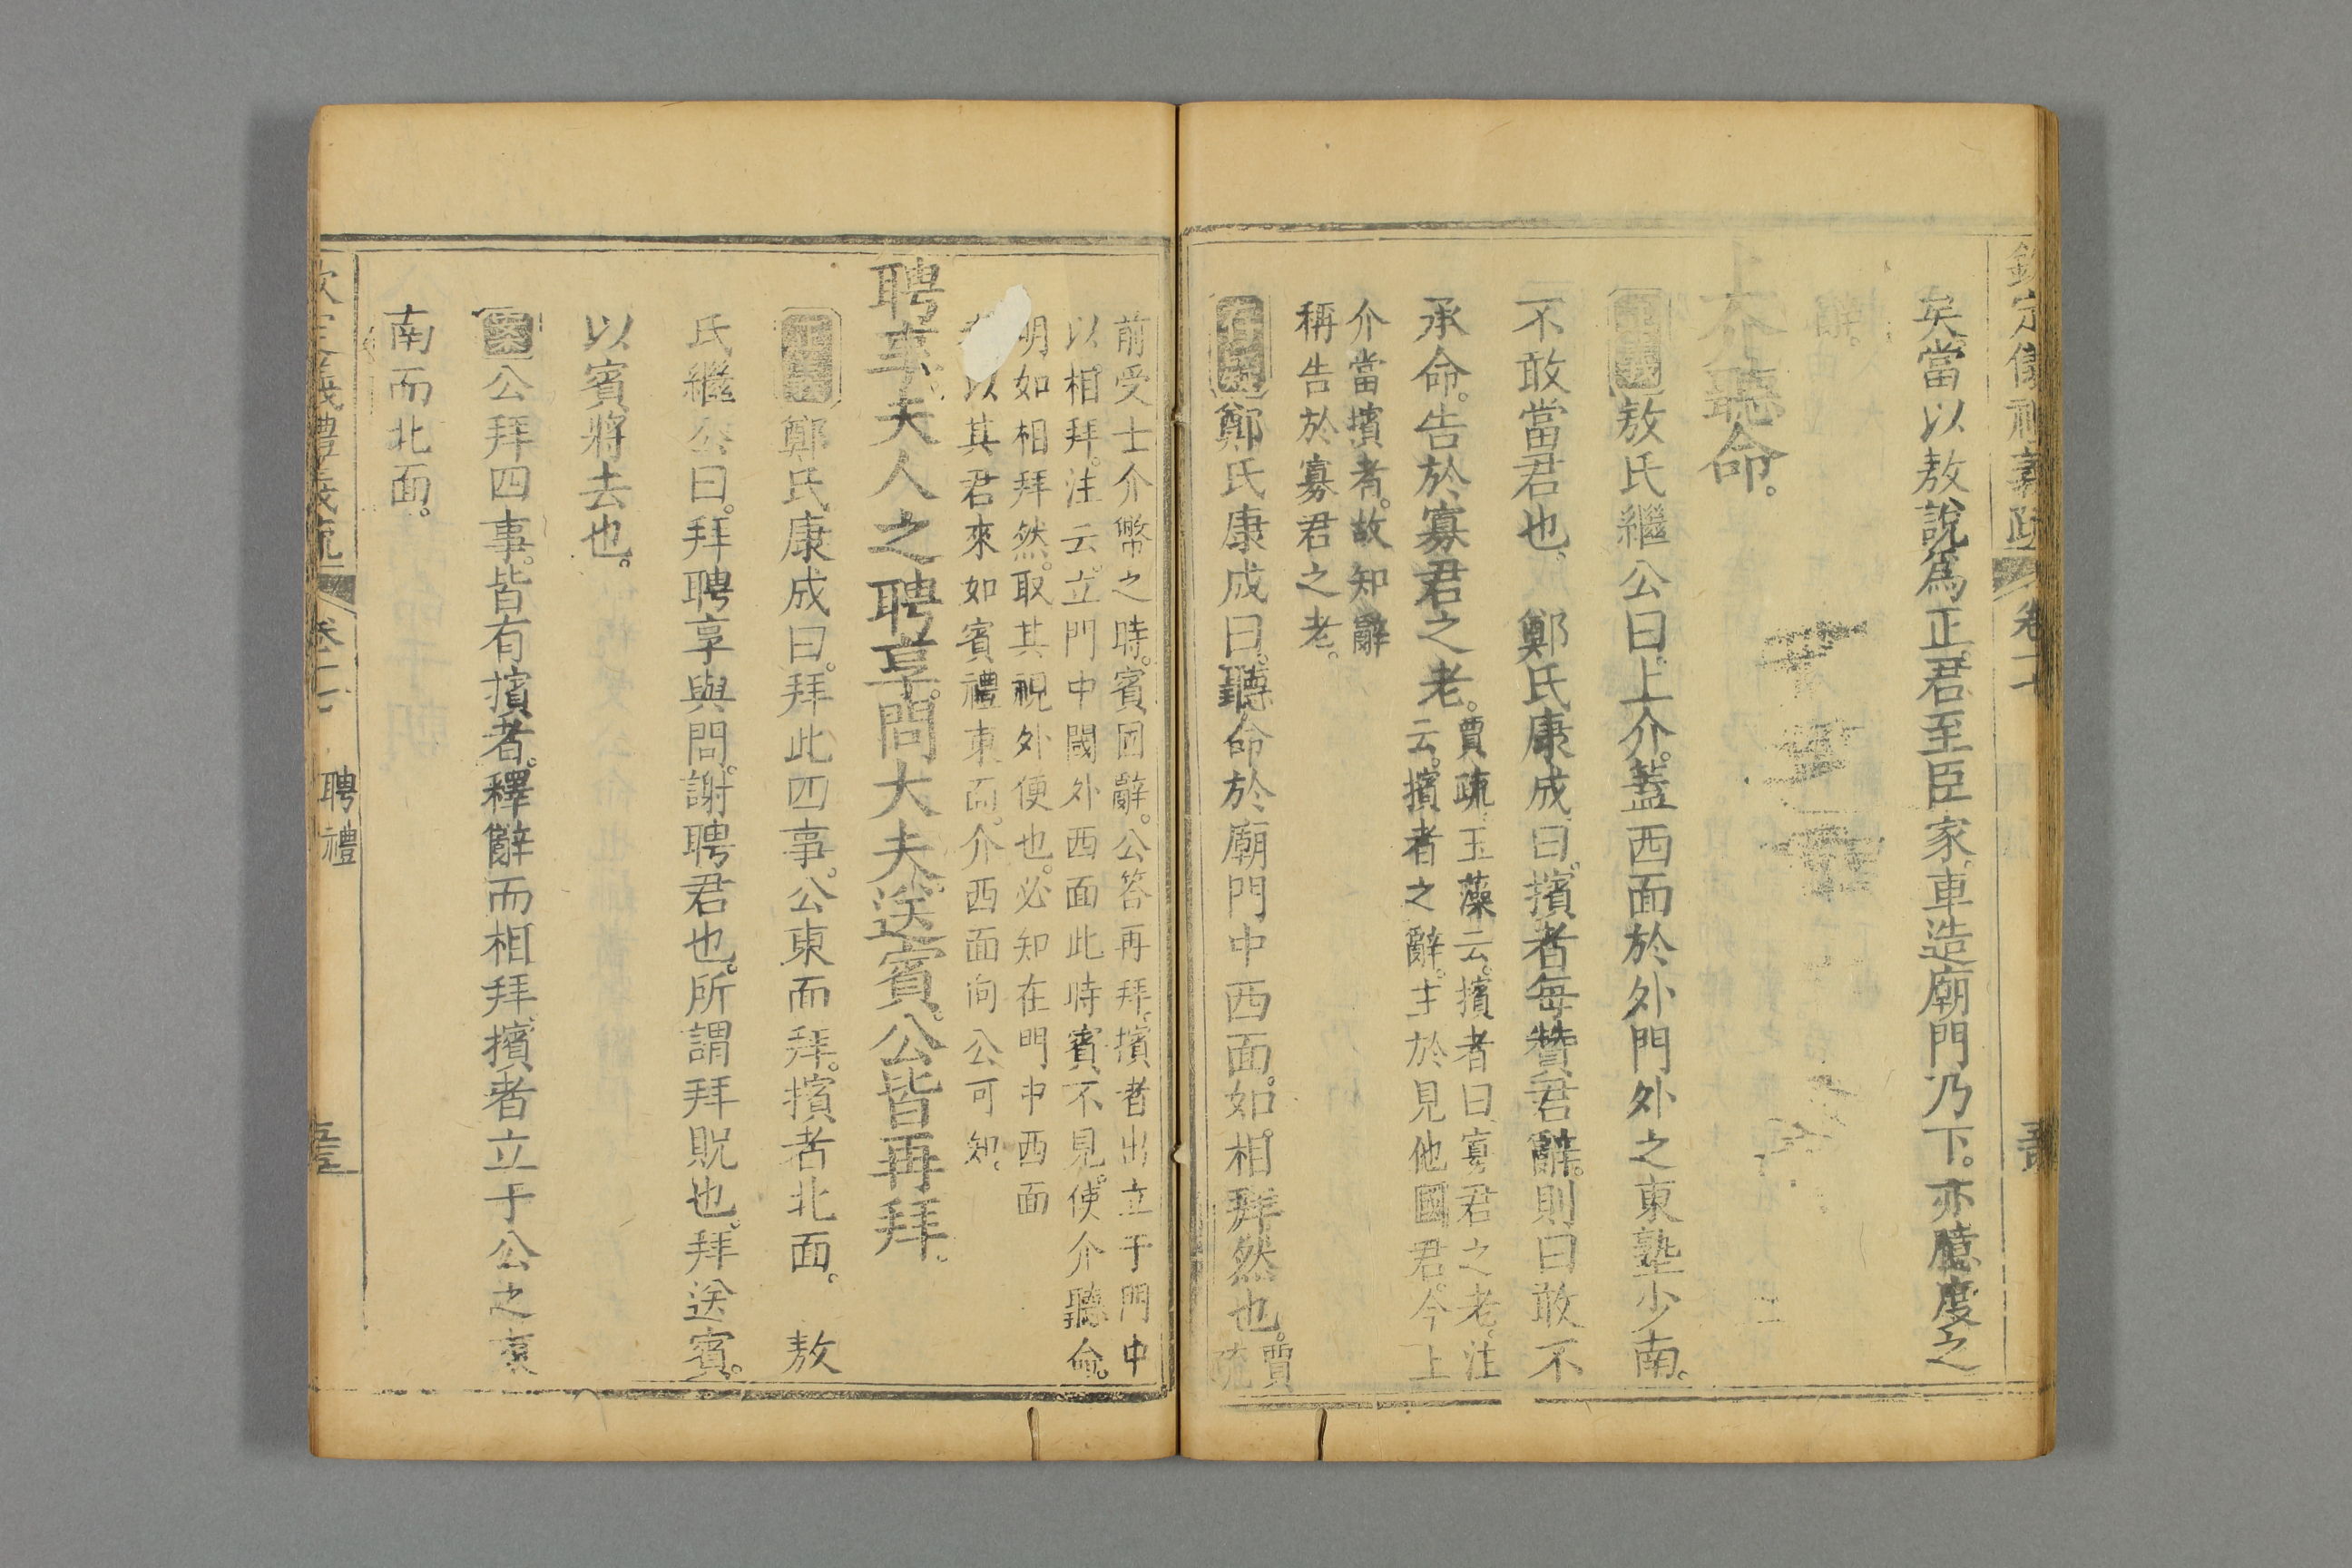 矣當以敖說爲正君至臣家車造廟門乃下。亦臆度之
辭。
上介聽命。
敖氏繼公曰上介。蓋西面於外門外之東塾少南。
不敢當君也、鄭氏康成曰。擯者每贊君辭。則曰敢不
承命。告於寡君之老。賈疏玉藻云。擯者曰寡君之老。注
云。擯者之辭。主於見他國君。今上
介當擯者。故知辭
稱告於寡君之老。
存疑鄭氏康成曰。聽命於廟門中西面。如相拜然也。賈
疏
前受士介幣之時。賓固辭。公答再拜。擯者出立于門中
以相拜。注云。立門中閾外西面此時賓不見。使介聽命。
明如相拜然。取其視外便也。必知在門中西面
以其君來如賓禮東面。介西面向公可知。
聘享夫人之聘享。問大夫。送賓。公皆再拜。
正義鄭氏康成曰。拜此四事。公東面拜。擯者北面。敖
氏繼公曰。拜聘享與問。謝聘君也。所謂拜貺也。拜送賓。
以賓將去也。
案公拜四事。皆有擯者。釋辭而相拜擯者立于公之東
南而北面。
聘禮